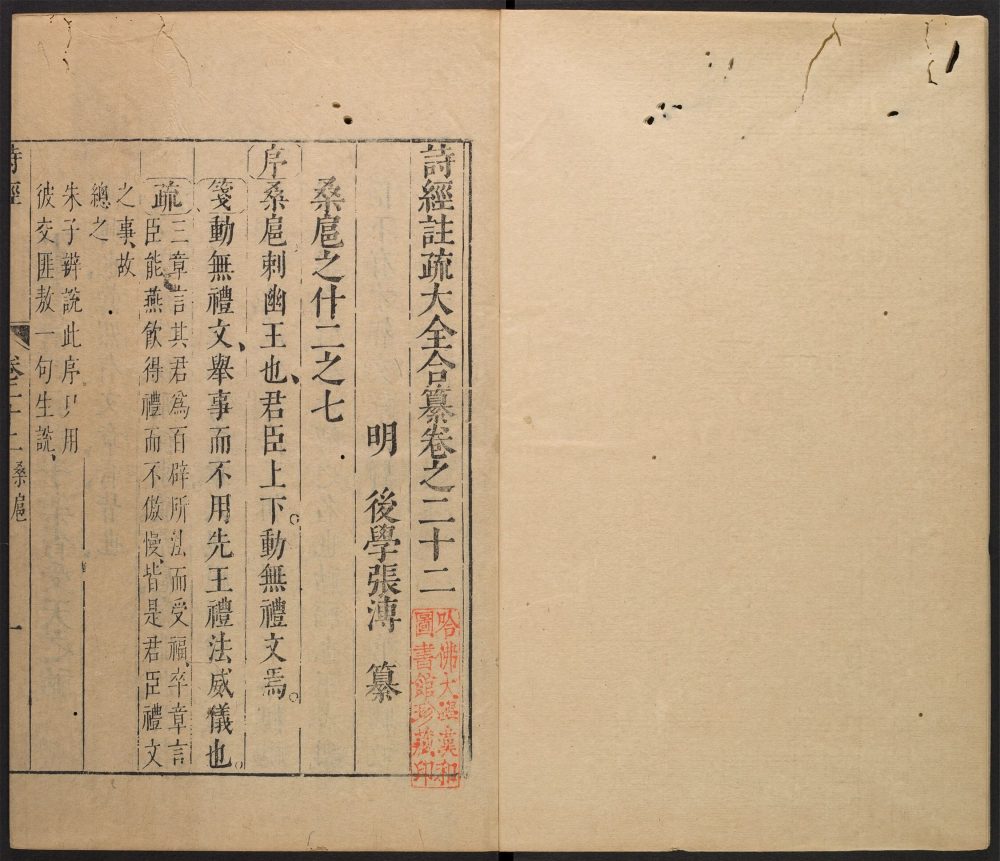 詩經註疏大全合纂卷之二十二
明 後學張溥 纂
桑扈之什二之七
序 桑扈刺幽王也、君臣上下。動無禮文焉。
箋 動無禮文、舉事而不用先王禮法威儀也。
疏 三章言其君為百辟所法而受福、卒章言
臣能燕飲得禮而不傲慢、皆是君臣禮文
之事、故
總之
朱子辨說此序只用
彼交匪敖一句生說、
詩經 卷二十二 桑扈 一
哈佛大學漢和
圖書館珍藏印